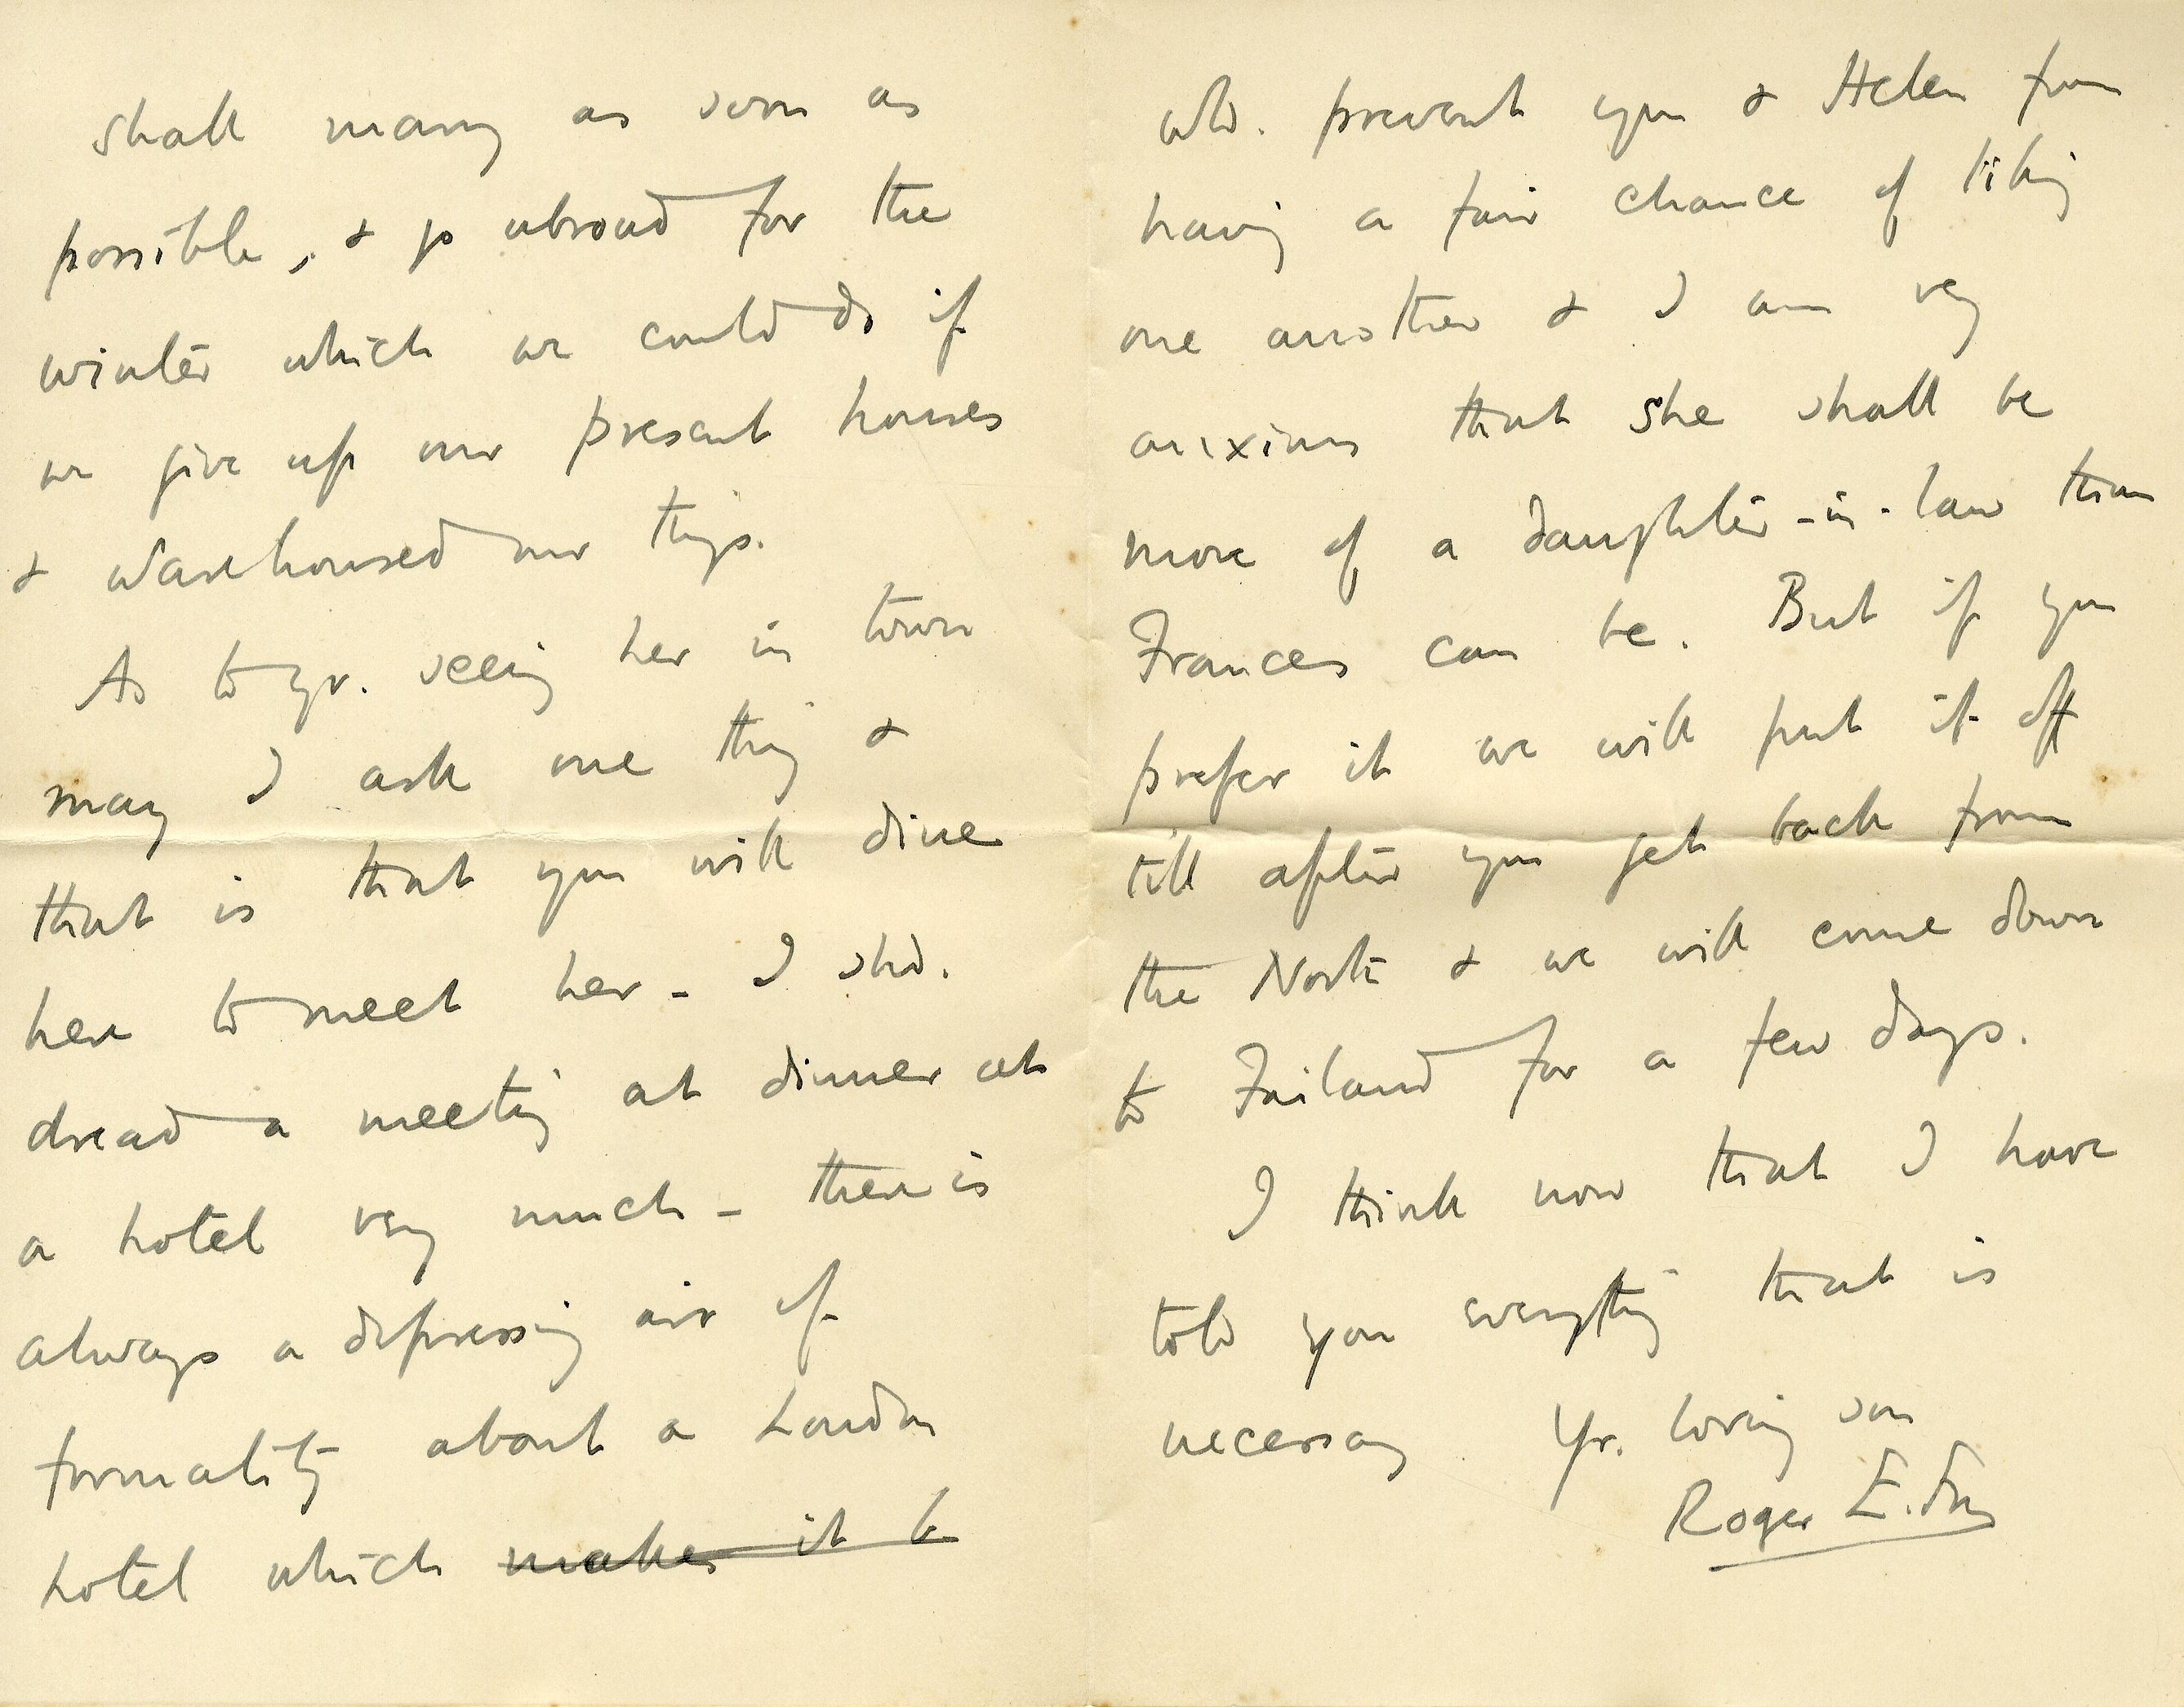 shall marry as soon as
possible, & go abroad for the
winter which we could do if
we give up our present houses
& warehoused our things.
As to yr. seeing her in town
may I ask one thing &
that is that you will dine
here to meet her - I shd.
dread a meeting at dinner at
a hotel very much - there is
always a depressing air of
formality about a London
hotel which makes it to
wld. prevent you & Helen from
having a fair chance of liking
one another & I am very
anxious that she shall be
more of a daughter-in-law than
Frances can be. But if you
prefer it we will put it off
till after you get back from
the North & we will come down
to Failand for a few days.
I think now that I have
told you everything that is
necessary Yr. loving son
Roger E. Fry